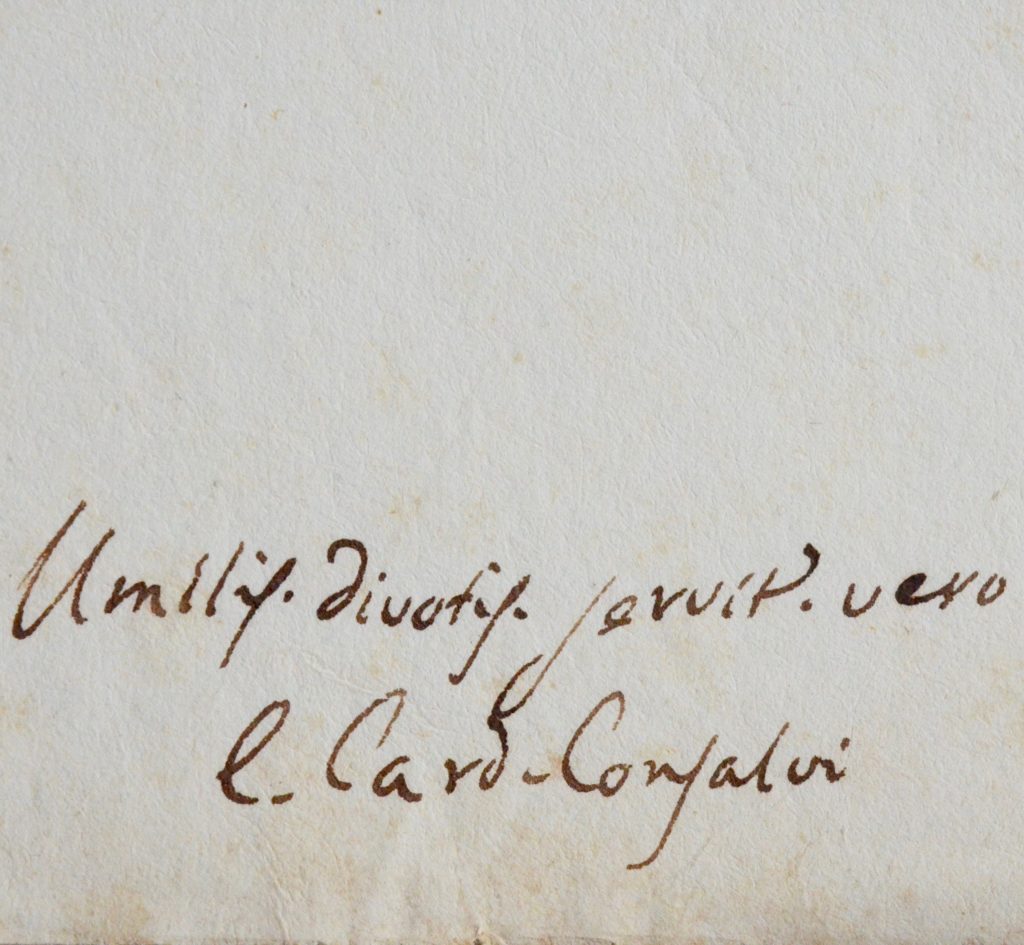 Umiliſ. divotiſ. ſervit. vero
E. Card. Conſalvi